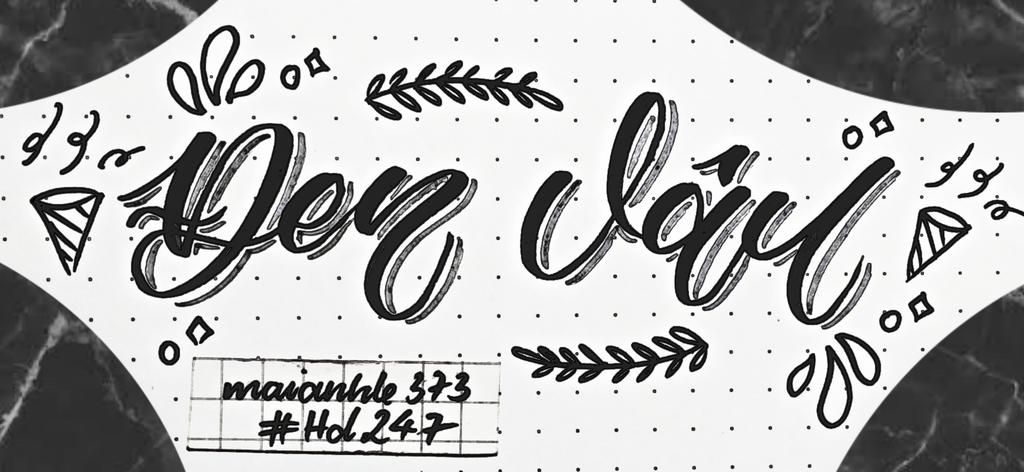 Đen Vâu
maianhle 373
#Hol 247